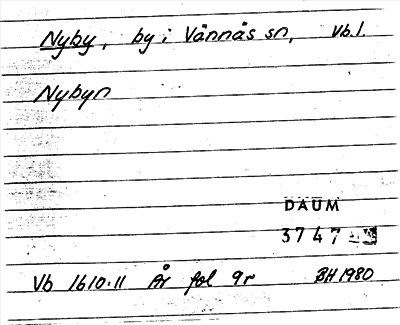 Nyby, by i Vännäs sn, Vb.l.
Nybyn
DAUM
3747
Vb 1610:11 År fol 9r BH 1980